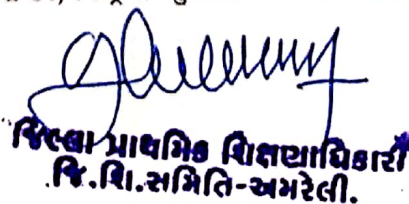 જિલ્લા પ્રાથમિક શિક્ષણાધિકારી
જિ.શિ.સમિતિ-અમરેલી.